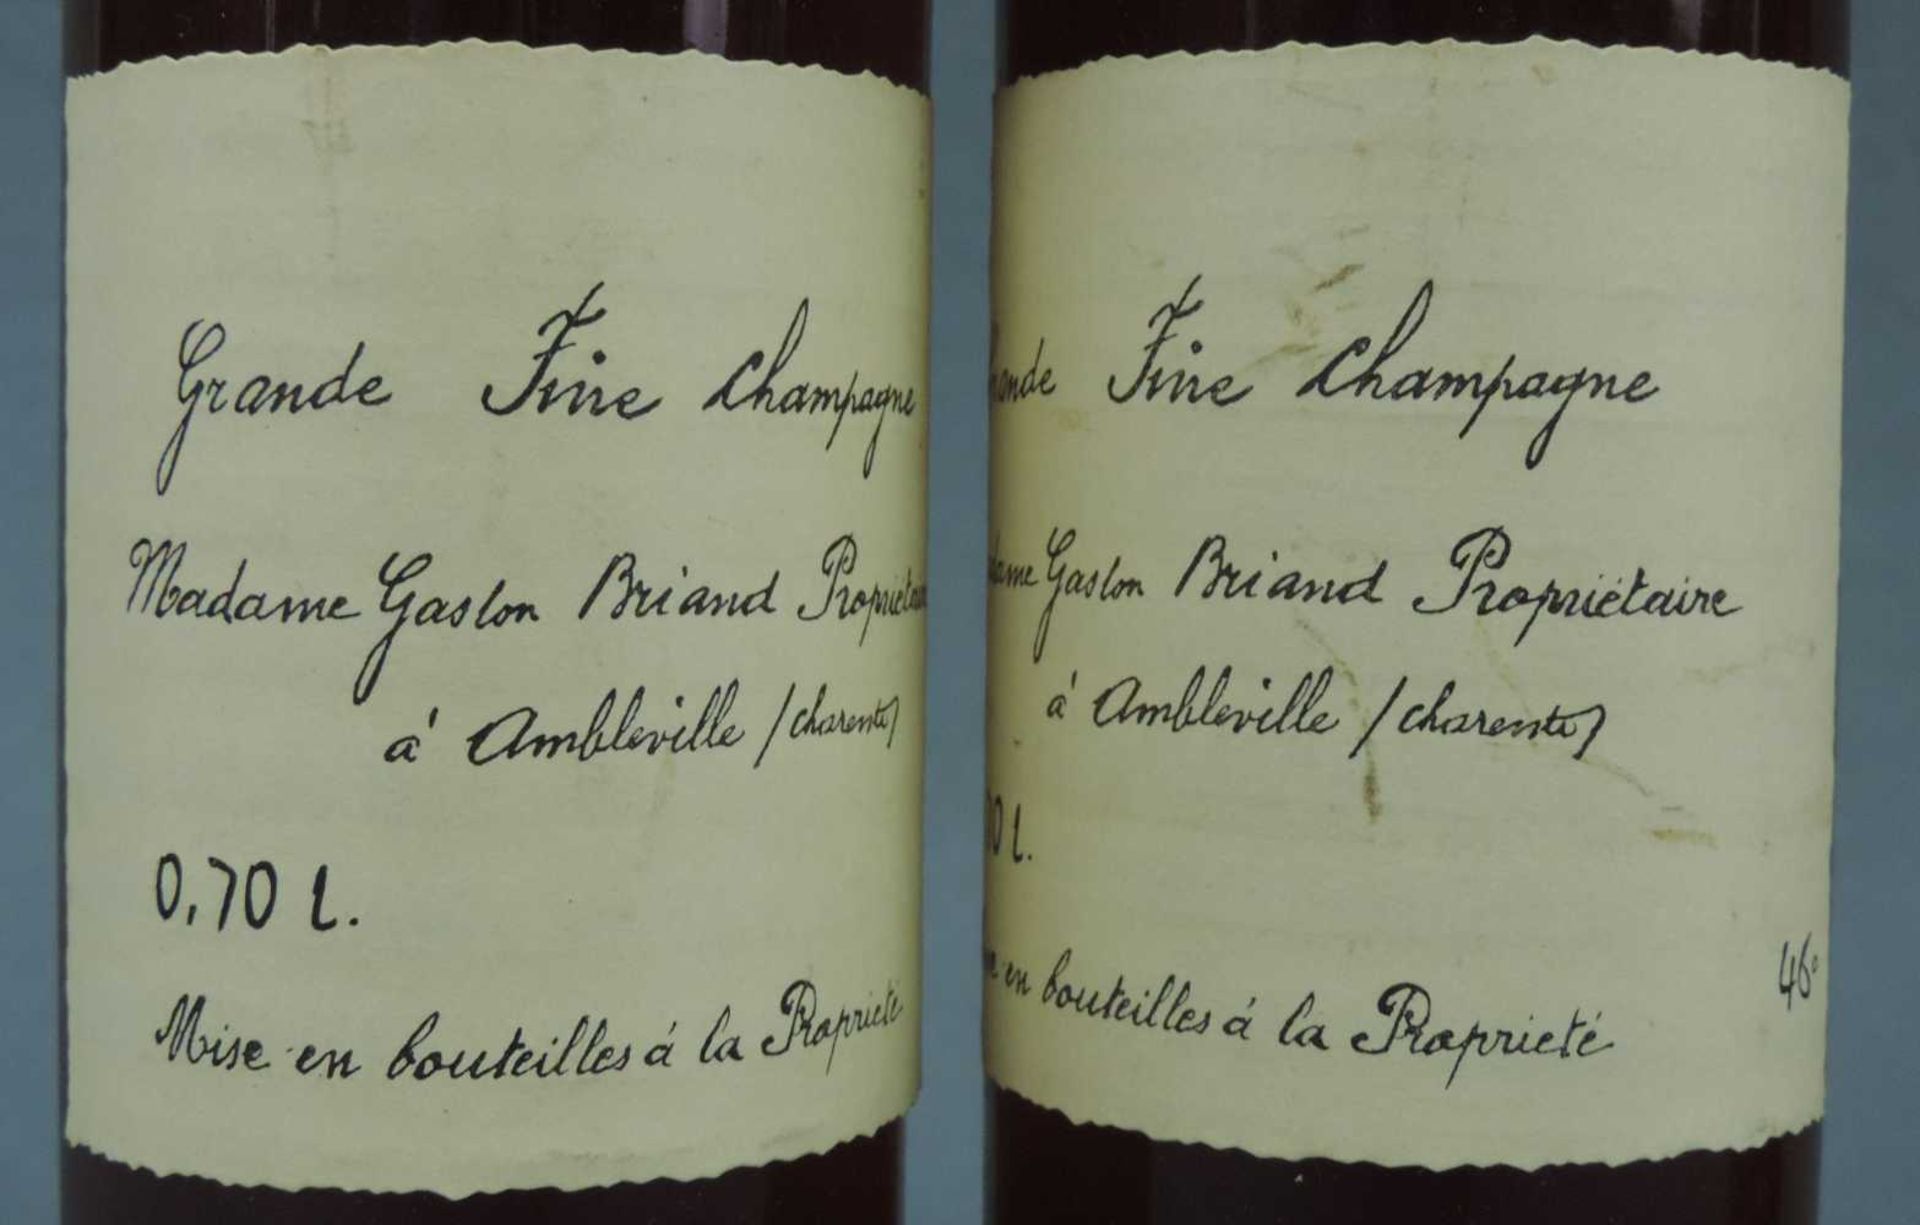 Grande Fine Champagne
Madame Gaston Briand Propriétaire
à Ambleville (charente)
0,70 l.
Mise en bouteilles à la Proprieté
ande Fine Champagne
dame Gaston Briand Propriétaire
à Ambleville (charente)
70 l.
en bouteilles à la Proprieté
46°